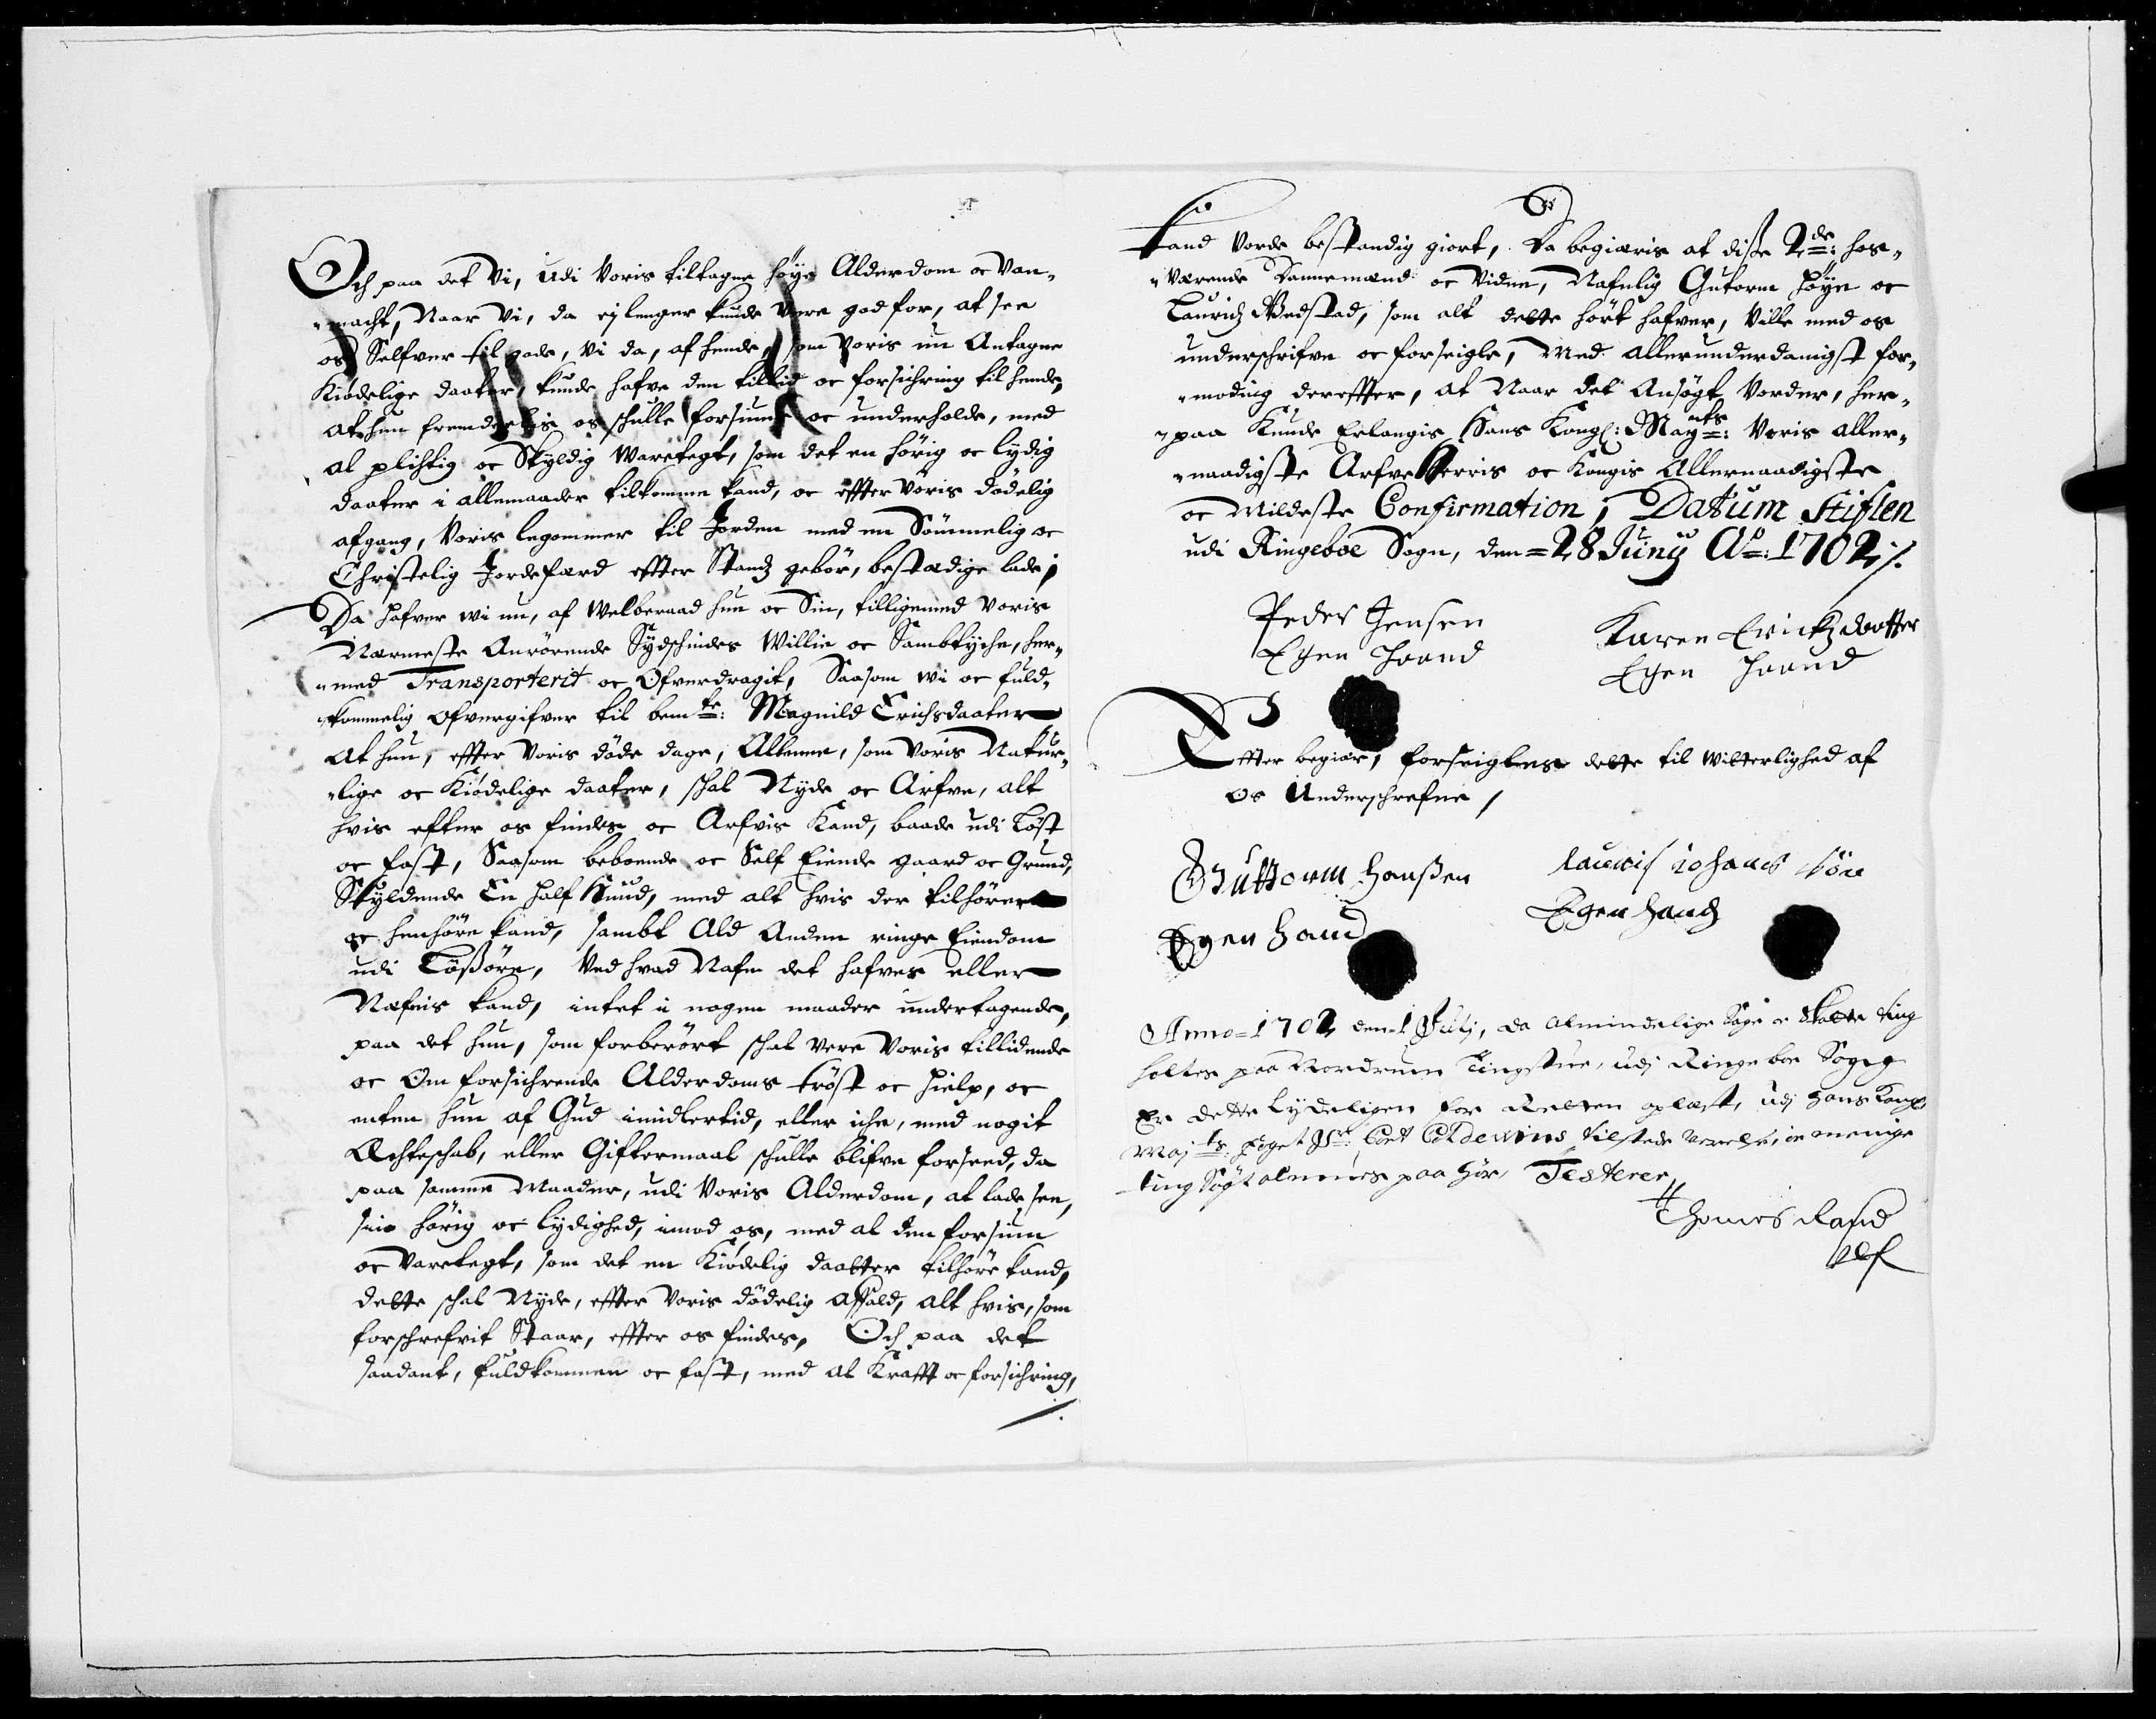 Och paa det Vi, udi Voris tiltagne høye Alderdom oc Van„
„macht, Naar Vi, da ej lenger kunde være god for, at see
os Selfver til gode, Vi da, af hende, som Voris nu Antagne
Kiødelige daater, kunde hafve den tillid oc forsichring til hende,
at hun fremdeelis os schulle forsiune oc underholde, med
al plichtig oc Skyldig Waretegt, som det en hørig oc lydig
daater i allemaader tilkomme kand, oc effter Voris dødelig
afgang, Voris legommer til Jorden med en Sømmelig oc
Christelig Jordefærd effter Standz gebør, bestædige lade;
Da hafver wi nu, af Welberaad hue oc Sin, tilligemed Voris
Nærmeste Anrørende Sydschindes Willie oc Sambtyche, her„
„med Transporterit oc Ofverdragit, Saasom wi oc fuld„
„kommelig ofvergifver til bemte: Magnild Erichsdaater
At hun, effter Voris døde dage, Alleene, som Voris Natur„
„lige oc Kiødelige daater, schal Nyde oc Arfve, alt
hvis efter os findes oc Arfvis Kand, baade udi Løst
oc fast, Saasom beboende oc Self Eiende gaard oc Grund,
Skyldende En half Huud, med alt hvis der tilhører
oc henhøre kand, sambt Ald Anden ringe Eiendom
udi Løßøre, Ved hvad Nafn det hafves eller
Næfnis kand, intet i nogen maader undertagende,
paa det hun, som forberørt schal være Voris tillidende
oc Om forsichrende Alderdoms trøst oc hielp, oc
enten hun af Gud imidlertid, eller iche, med nogit
Æchteschab, eller Giftermaal schulle blifve forseed, da
paa samme Maader, udi Voris Alderdom, at lade see,
sin hørig oc lydighed, imod os, med al den forsiun
oc Varetegt, som det en Kiødelig daatter tilhøre kand,
dette schal Nyde, effter Voris dødelig Affald, alt hvis, som
forschrefvit Staar, effter os findes, Och paa det
saadant, fuldkommen oc fast, med al Krafft oc forsichring,
kand Vorde bestandig giort, Da begiæris at disse 2de: hos„
„værende Dannemænd oc Viden, Nafnlig Gutorm Høye oc
Lauridz Wedstad, som alt dette hørt hafver, Ville med os
underschrifve oc forseigle, Med allerunderdanigst for„
„moding dereffter, at Naar det Ansøgt Vorder, her„
„paa Kunde Erlangis Hans Kongl: Mayts: Voris aller„
„naadigste Arfve Herris oc Kongis Allernaadigste
oc Mildeste Confirmation; Datum Stiflen
udi Ringeboe Sogn, den = 28 Junij Ao: 1702 ⁒
Peder Jensen
Egen Haand
Karen Erichzdotter
Egen Haand
Effter begiær, forseigles dette til Witterlighed af
Os Underschrefne /
Guttorm Hanßen
Egen Hand
lauris iohans søn
Egen Handz
Anno = 1702 den = 1 Julij, da Almindelige Sage oc Skatte ting
holtes paa Nordrum Tingstue, udj Ringeboe Sogn
Er dette lydeligen for Retten oplæst, udj Hans Kongl
Majts: foget Sr:
ting Søg Almues paa hør, Testerer,